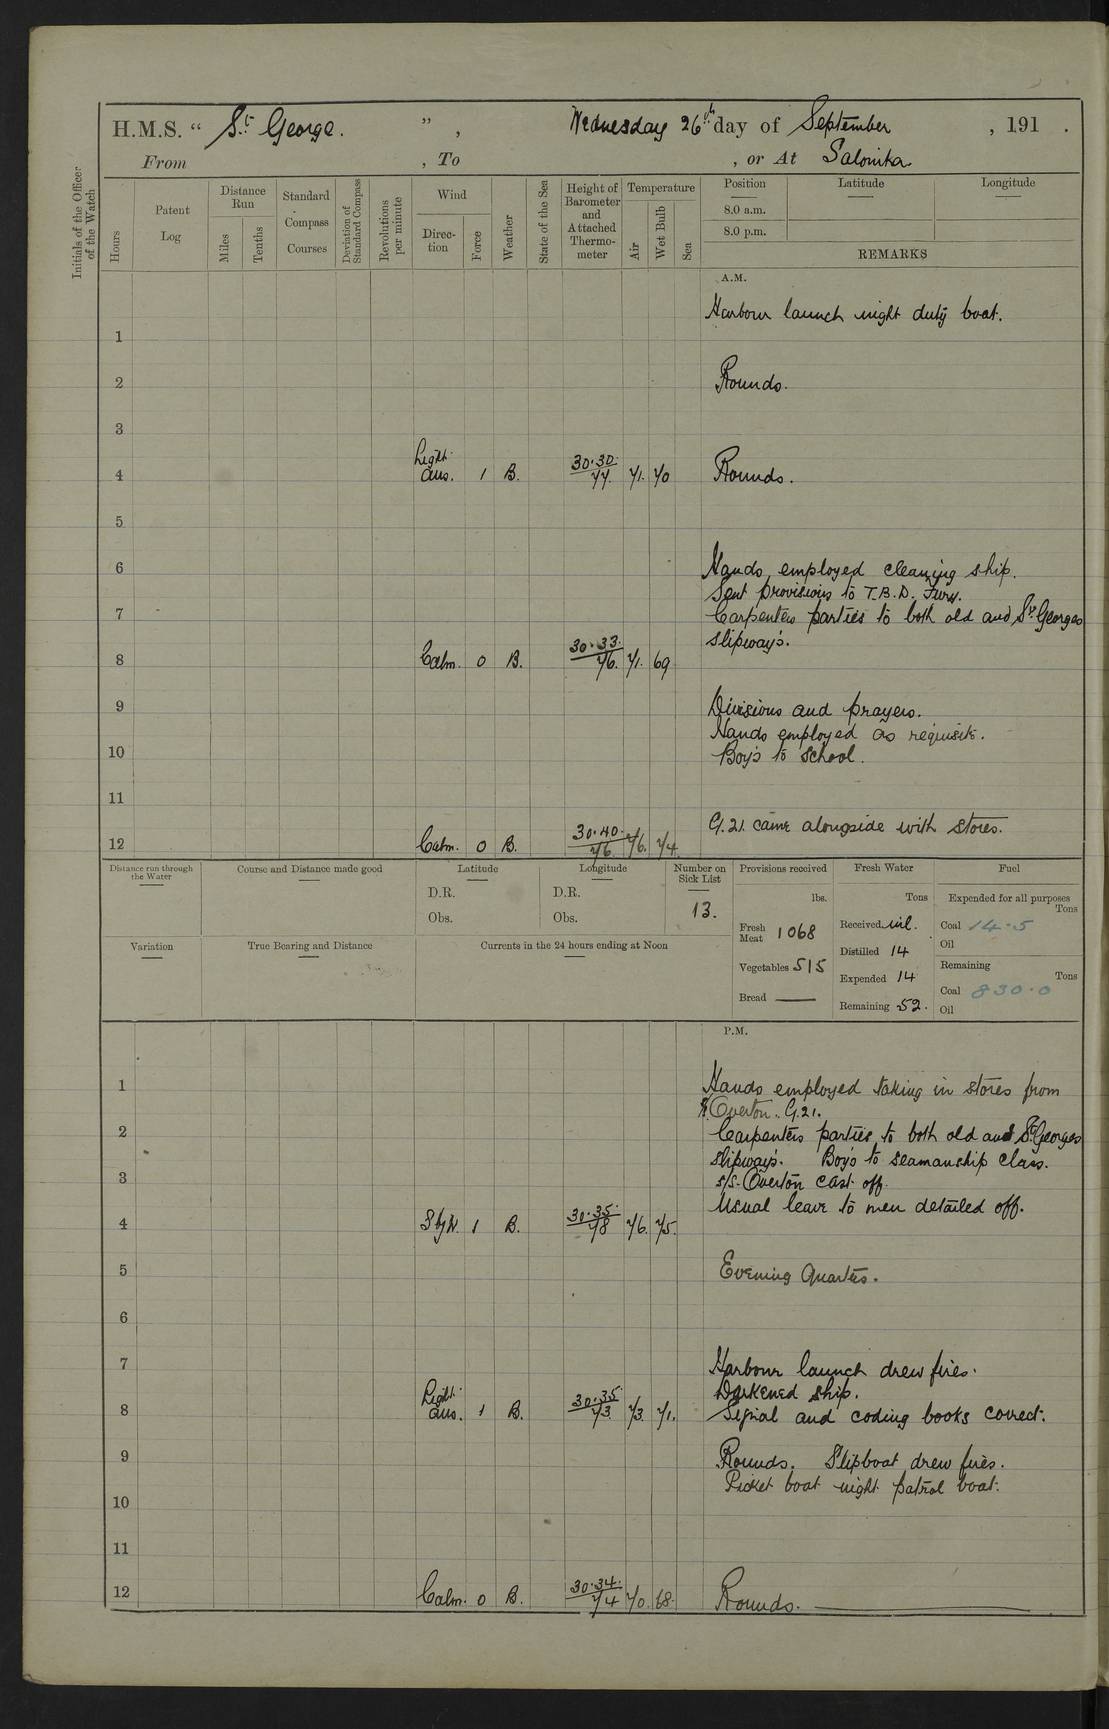 H.M.S. “ St George. ” , Wednesday 26th day of September , 191 .
From , To , or At Salonika
Initials of the Officer of the Watch
Hours
Patent Log
Distance Run
Miles
Tenths
Standard Compass Courses
Deviation of Standard Compass
Revolutions per minute
Wind
Direction
Force
Weather
State of the Sea
Height of Barometer and Attached Thermometer
Temperature
Air
Wet Bulb
Sea
Position Latitude Longitude
8.0 a.m.
8.0 p.m.
REMARKS
A.M.
Harbour launch night duty boat.
1
2 Rounds.
3
4 Light airs. 1 B. 30.30 77. 71. 70 Rounds.
5
6 Hands employed cleaning ship.
Sent provisions to T.B.D. Fury.
7 Carpenters parties to both old and St Georges
slipway's.
8 Calm. 0 B. 30.33. 76. 71. 69
9 Divisions and prayers.
Hands employed as requisite.
10 Boy's to school.
11
G.21. came alongside with stores.
12 Calm. 0 B. 30.40. 76. 76. 74.
Distance run through the Water
Course and Distance made good
Latitude
D.R.
Obs.
Longitude
D.R.
Obs.
Number on Sick List
13.
Provisions received
lbs.
Fresh Meat 1068
Vegetables 515
Bread —
Fresh Water
Tons
Received nil.
Distilled 14
Expended 14
Remaining 52.
Fuel
Expended for all purposes
Tons
Coal 14.5
Oil
Remaining
Tons
Coal 830.0
Oil
Variation
True Bearing and Distance
Currents in the 24 hours ending at Noon
P.M.
1 Hands employed taking in stores from
Overton. G.21.
2 Carpenters parties to both old and St Georges
slipway's. Boy's to seamanship class.
3 s/s. Overton cast off.
Usual leave to men detailed off.
4 S by W. 1 B. 30.35. 78 76. 75.
5 Evening Quarters.
6
7 Harbour launch drew fires.
Darkened ship.
8 Light airs. 1 B. 30.35. 73 73. 71. Signal and coding books correct.
9 Rounds. Slipboat drew fires.
Picket boat night patrol boat.
10
11
12 Calm. 0 B. 30.34. 74 70. 68. Rounds.